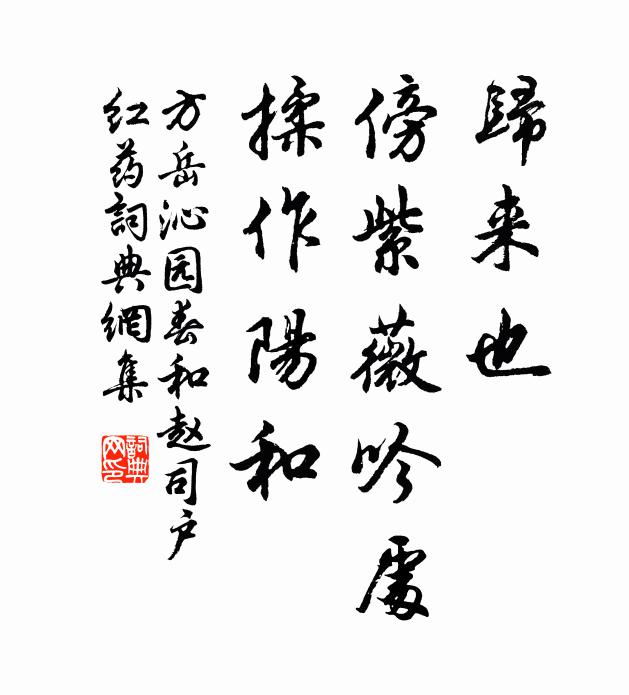 歸来也
傍紫薇吟處
揉作陽和
方岳沁园春和赵司户
红药詞典網集
詞典
网印